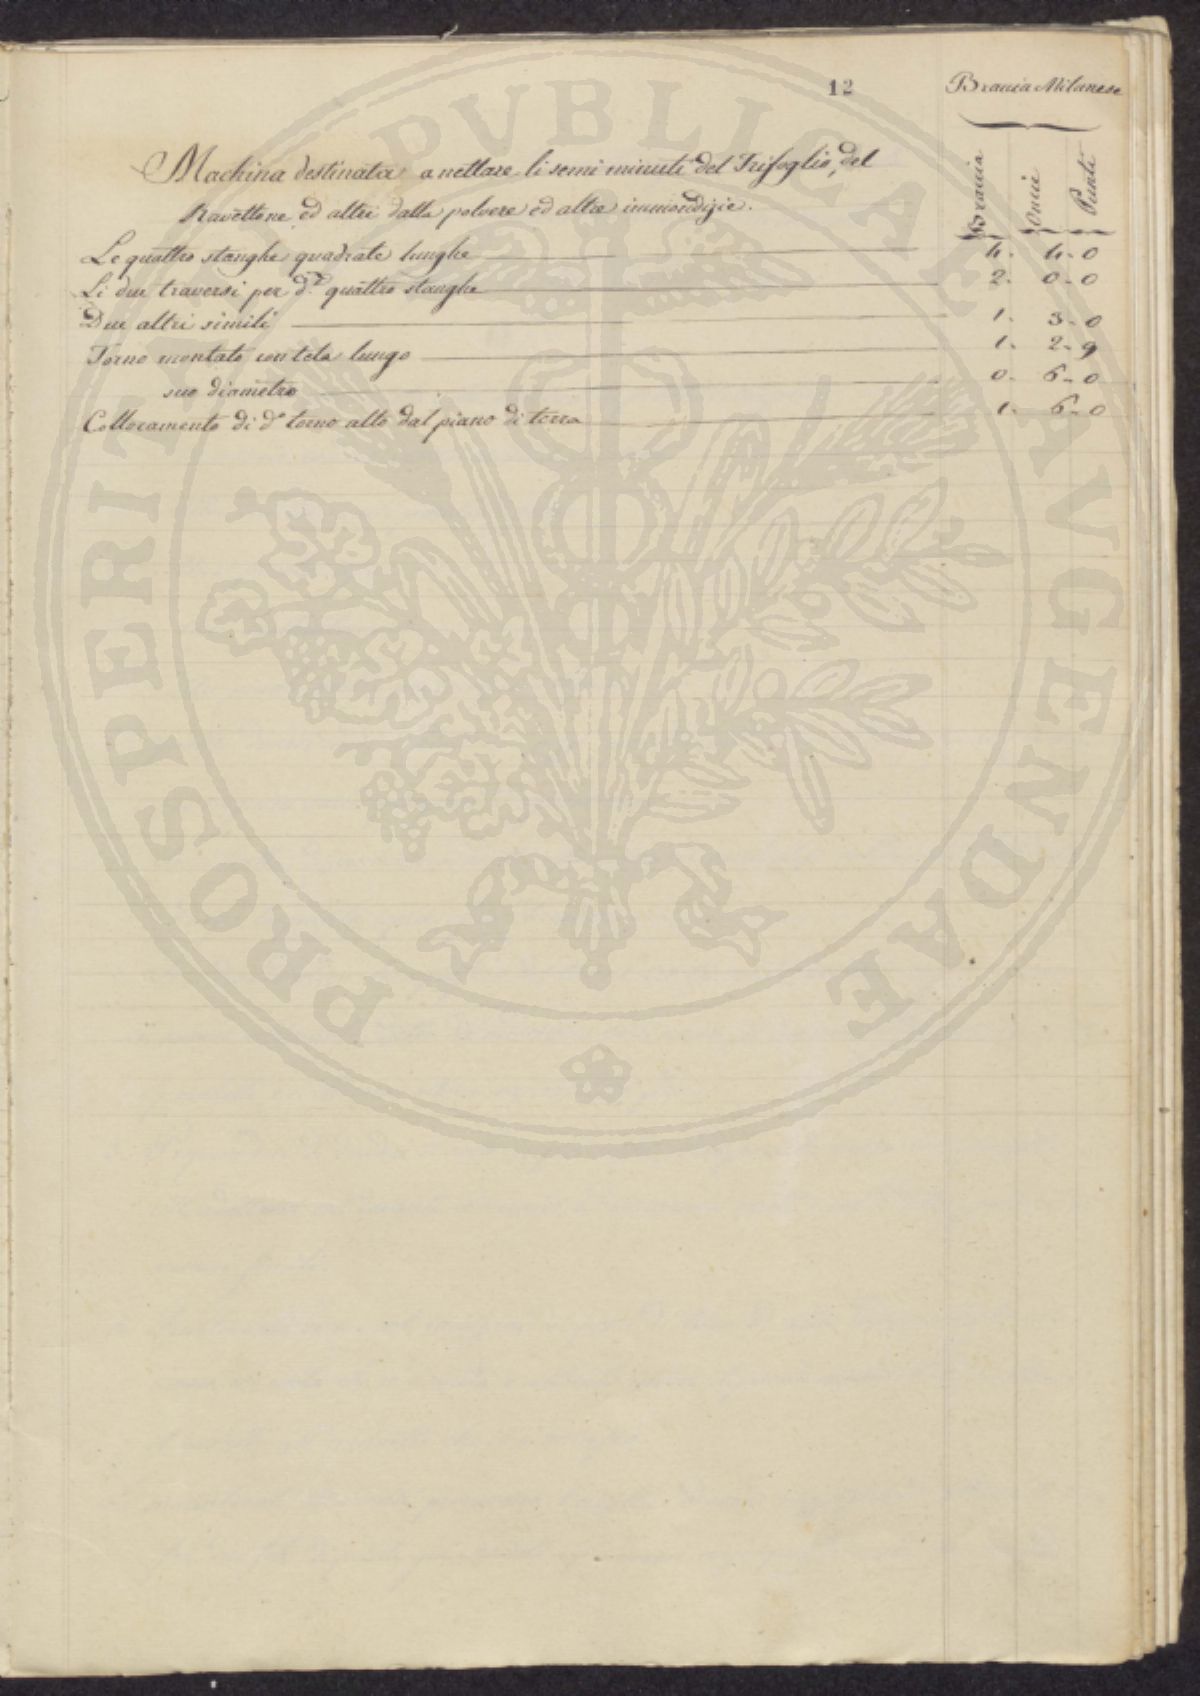 12
Braccia Milanese
Braccia Oncie Punti
Machina destinata a nettare li semi minuti del Trifoglio, del
Ravettone ed altri dalla polvere ed altre immondizie.
Le quattro stanghe quadrate lunghe 4. 4. 0
Li due traversi per d.e quattro stanghe 2. 0. 0
Due altri simili 1. 3. 0
Torno montato con tela lungo 1. 2. 9
suo diametro 0. 6. 0
Collocamento di d.o torno alto dal piano di terra 1. 6. 0
PROSPERITATI PVBLICAE AVGENDAE